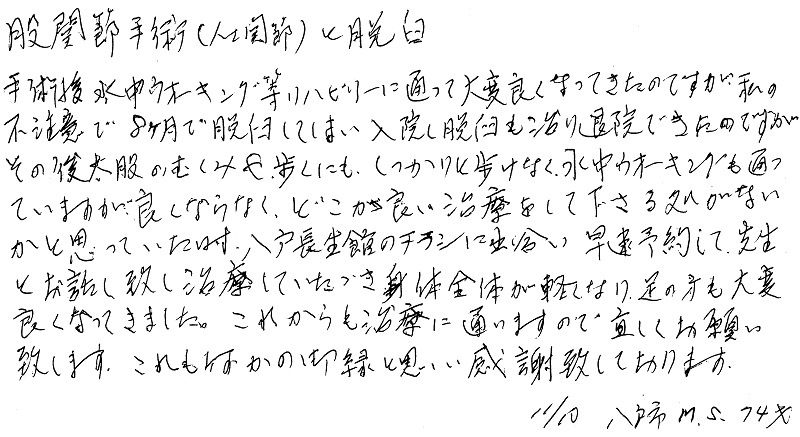 股関節手術(人工関節)と脱臼
手術後水中ウオーキング等リハビリーに通って大変良くなってきたのですが私の
不注意で8ヶ月で脱臼してしまい入院し脱臼も治り退院できたのですが
その後太股のむくみや歩くにも、しっかりと歩けなく、水中ウオーキングも通っ
ていますが良くならなく、どこか良い治療をして下さる処がない
かと思っていた時、八戸長生館のチラシに出合い早速予約して、先生
とお話し致し治療していただき身体全体が軽くなり、足の方も大変
良くなってきました。これからも治療に通いますので宜しくお願い
致します。これもなにかの御縁と思いい感謝致しております。
11/10 八戸市 M.S. 74才